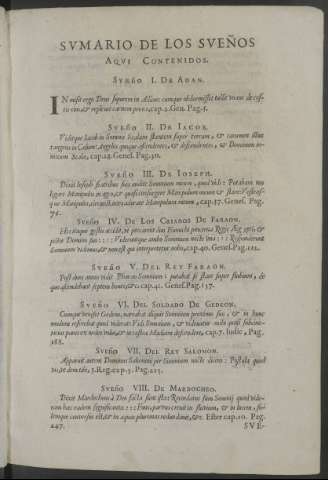 SVMARIO DE LOS SVEÑOS
AQVI CONTENIDOS.
SVEÑO I. DE ADAN.
IN misit ergo Deus soporem in Adam: cumque obdormisset tulit unam de cos-
tis eius, & replevit carnem pro ea, cap. 2. Gen. Pag. 1.
SVEÑO II. DE IACOB.
Viditque Iacob in Somno Scalam stantem super terram, & cacumen illius
tangens in Cœlum: Angelos quoque ascendentes, & descendentes, & Dominum in-
nixum Scalæ, cap. 28. Genes. Pag. 30.
SVEÑO III. DE IOSEPH.
Dixit Ioseph fratribus suis audite Somnium meum, quod vidi: Putabam nos
ligare Manipulos in agro, & quasi consurgere Manipulum meum & stare: Vestros-
que Manipulos circunstantes adorare Manipulum meum, cap. 37. Genes. Pag.
76.
SVEÑO IV. DE LOS CRIADOS DE FARAON.
His itaque gestis accidit, ut peccarent duo Eunuchi pincerna Regis Ægypti, &
pistor Domino suo :::: Videruntque ambo Somnium nocte una ::: Responderunt
Somnium vidimus, & non est qui interpretetur nobis, cap. 40. Genes. Pag. 122.
SVEÑO V. DEL REY FARAON.
Post duos annos vidit Pharao Somnium: putabat se stare super fluvium, de
quo ascendebant septem boves, & c. cap. 41. Genes. Pag. 157.
SVEÑO VI. DEL SOLDADO DE GEDEON.
Cumque venisset Gedeon, narrabat aliquis Somnium proximo suo, & in hunc
modum referebat quod viderat: Vidi Somnium, & videbatur mihi quasi subcine-
ricius panis ex ordeo volvi, & in castra Madian descendere, cap. 7. Iudic. Pag.
188.
SVEÑO VII. DEL REY SALOMON.
Apparuit autem Dominus Salomoni per Somnium nocte dicens: Postula quod
vis ut dem tibi, 3. Reg. cap. 3. Pag. 225.
SVEÑO VIII. DE MARDOCHEO.
Dixit Mardocheus à Deo facta sunt ista: Recordatus sum Somnij quod vide-
ram hæc eadem significantis ::: Fons parvus crevit in fluvium, & in lucem, so-
lemque conversus est, & in aquas plurimas redundavit, & c. Ester cap. 10. Pag.
247.
SVE-